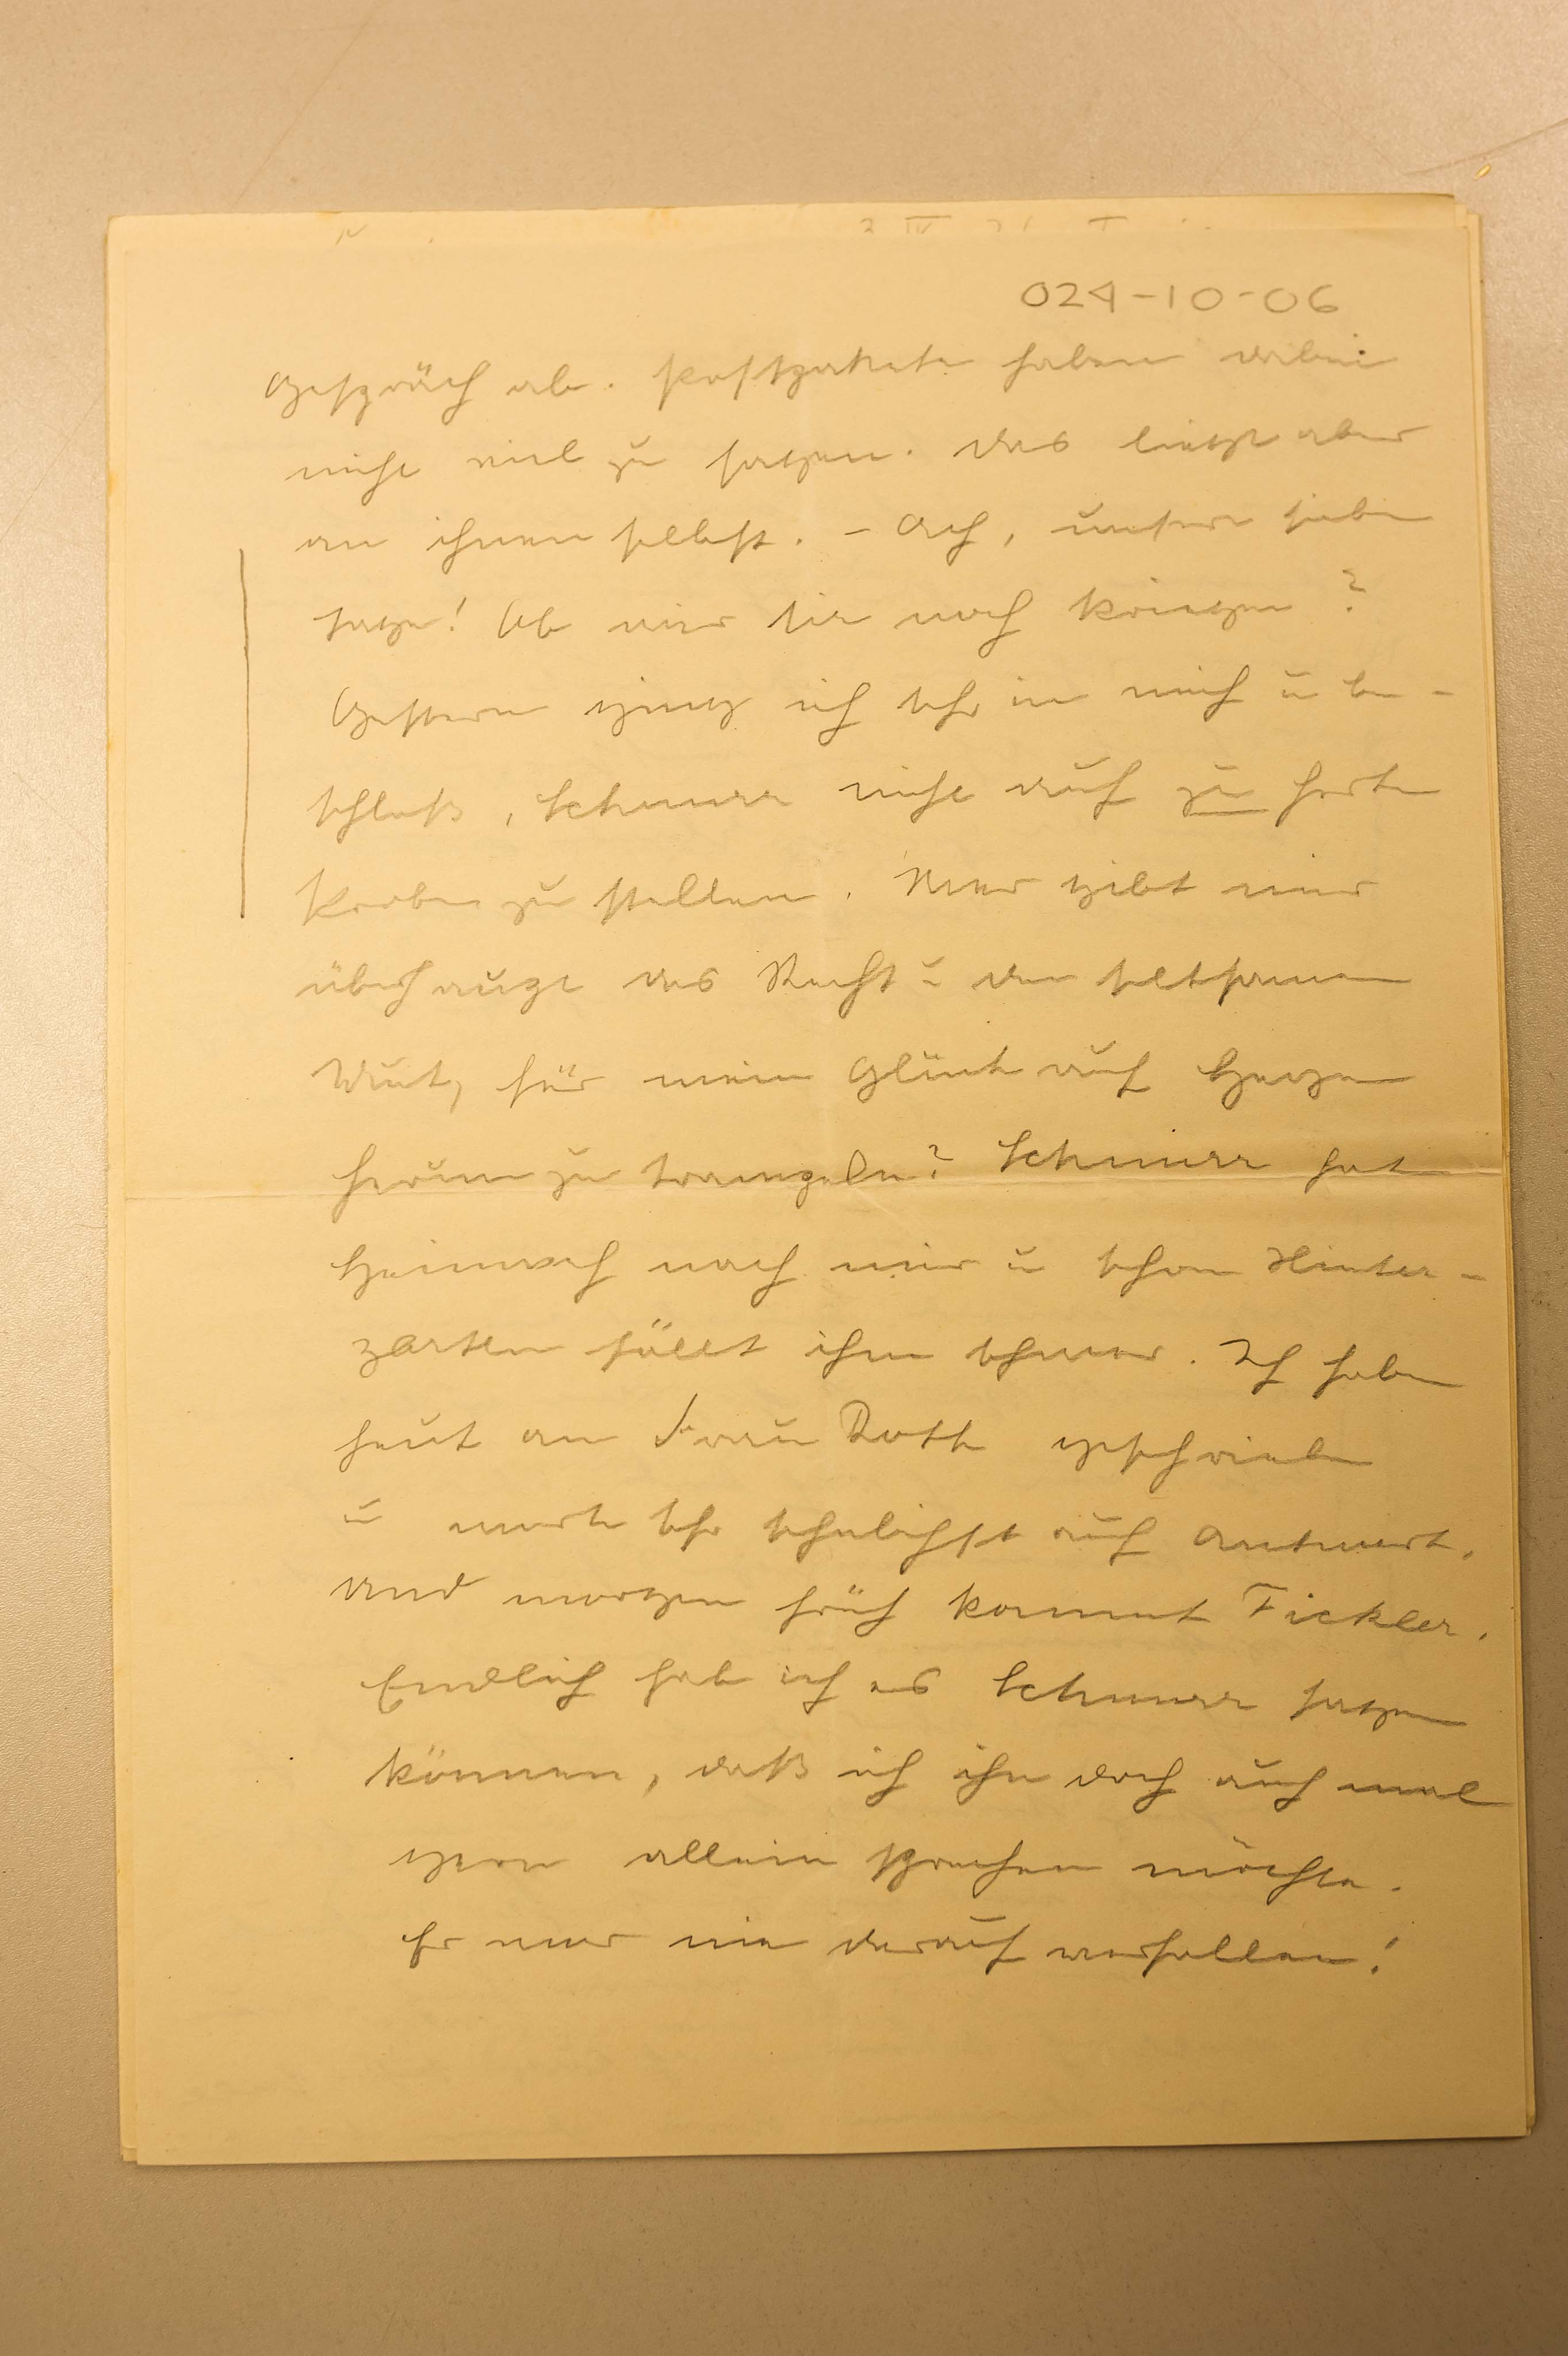 024-10-06
Gespräch ab. Postpakete haben dabei
nicht viel zu sagen. Das liegt aber
an ihnen selbst. – Ach, unsere liebe
! Ob wir sie noch kriegen?
Gestern ging ich sehr in mich u be-
schloß, Schnurr nicht auf zu harte
Proben zu stellen. Wer gibt mir
überhaupt das Recht u den seltsamen
Mut, für mein Glück auf Herzen
herum zu trampeln? Schnurr hat
Heimweh nach mir u schon Hinter-
zarten fällt ihm schwer. Ich habe
heut an Frau Roth geschrieben
u warte sehr sehnlichst auf Antwort.
Und morgen früh kommt Fickler.
Endlich hab ich es Schnurr sagen
können, daß ich ihn doch auch mal
gern allein sprechen möchte.
Er war nie darauf verfallen!